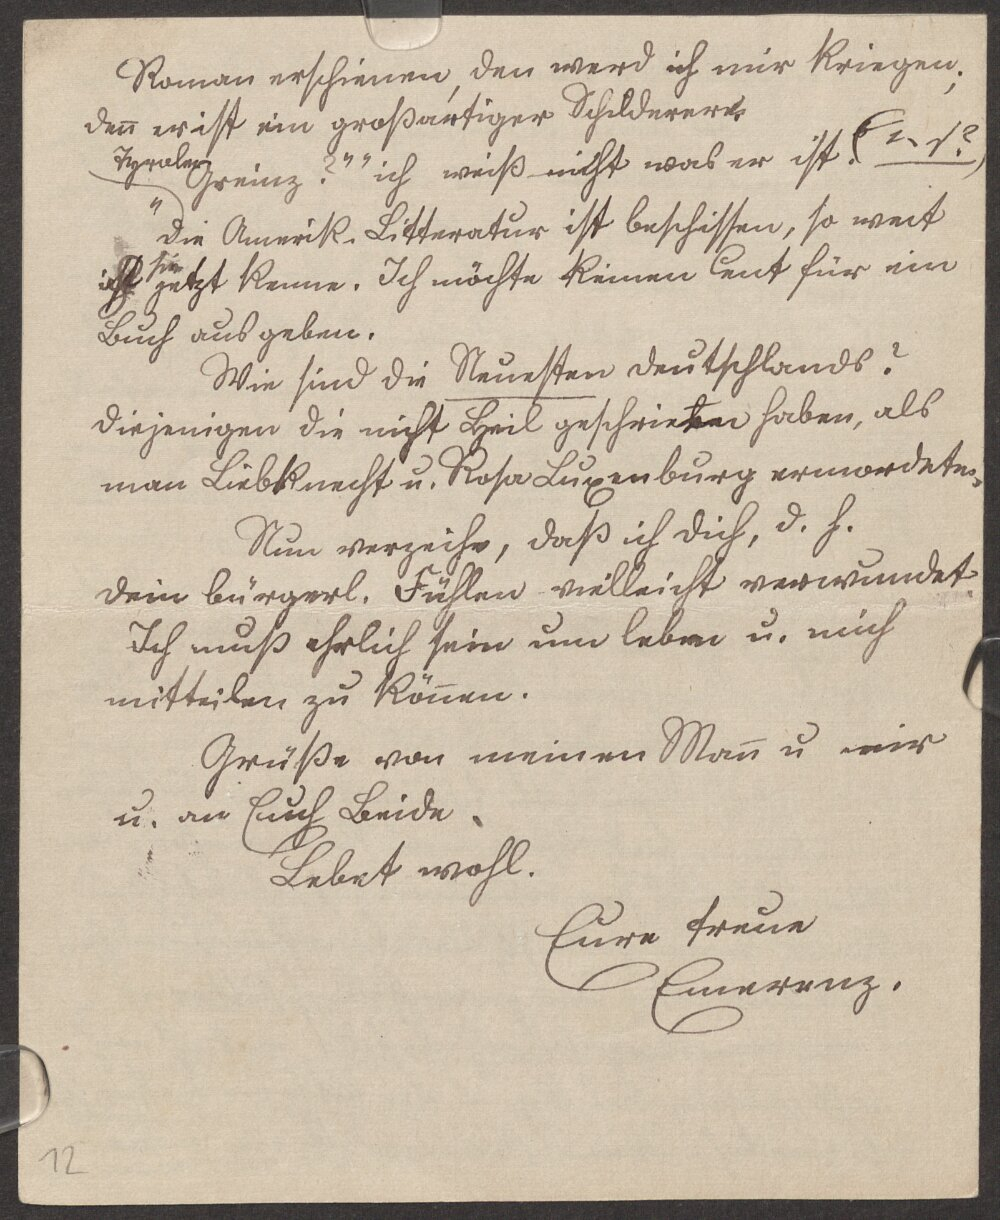 Roman erschienen, den werd ich mir kriegen,
deñ er ist ein großartiger Schilderer.
Tyroler
Greinz? "" ich weiß nicht was er ist. (
" Die Amerik. Litteratur ist beschissen, so weit
ich sie jetzt kenne. Ich möchte keinen Cent für ein
Buch ausgeben.
Wie sind die Neuesten Deutschlands?
Diejenigen die nicht Heil geschrieben haben, als
man Liebknecht u. Rosa Luxenburg ermordete.
Nun verzeihe, daß ich dich, d. h.
dein bürgerl. Fühlen vielleicht verwundet.
Ich muß ehrlich sein um leben u. mich
mitteilen zu köñen.
Grüße von meinen Mañ u mir
u. an Euch Beide.
Lebet wohl.
Eure treue
Emerenz.
12